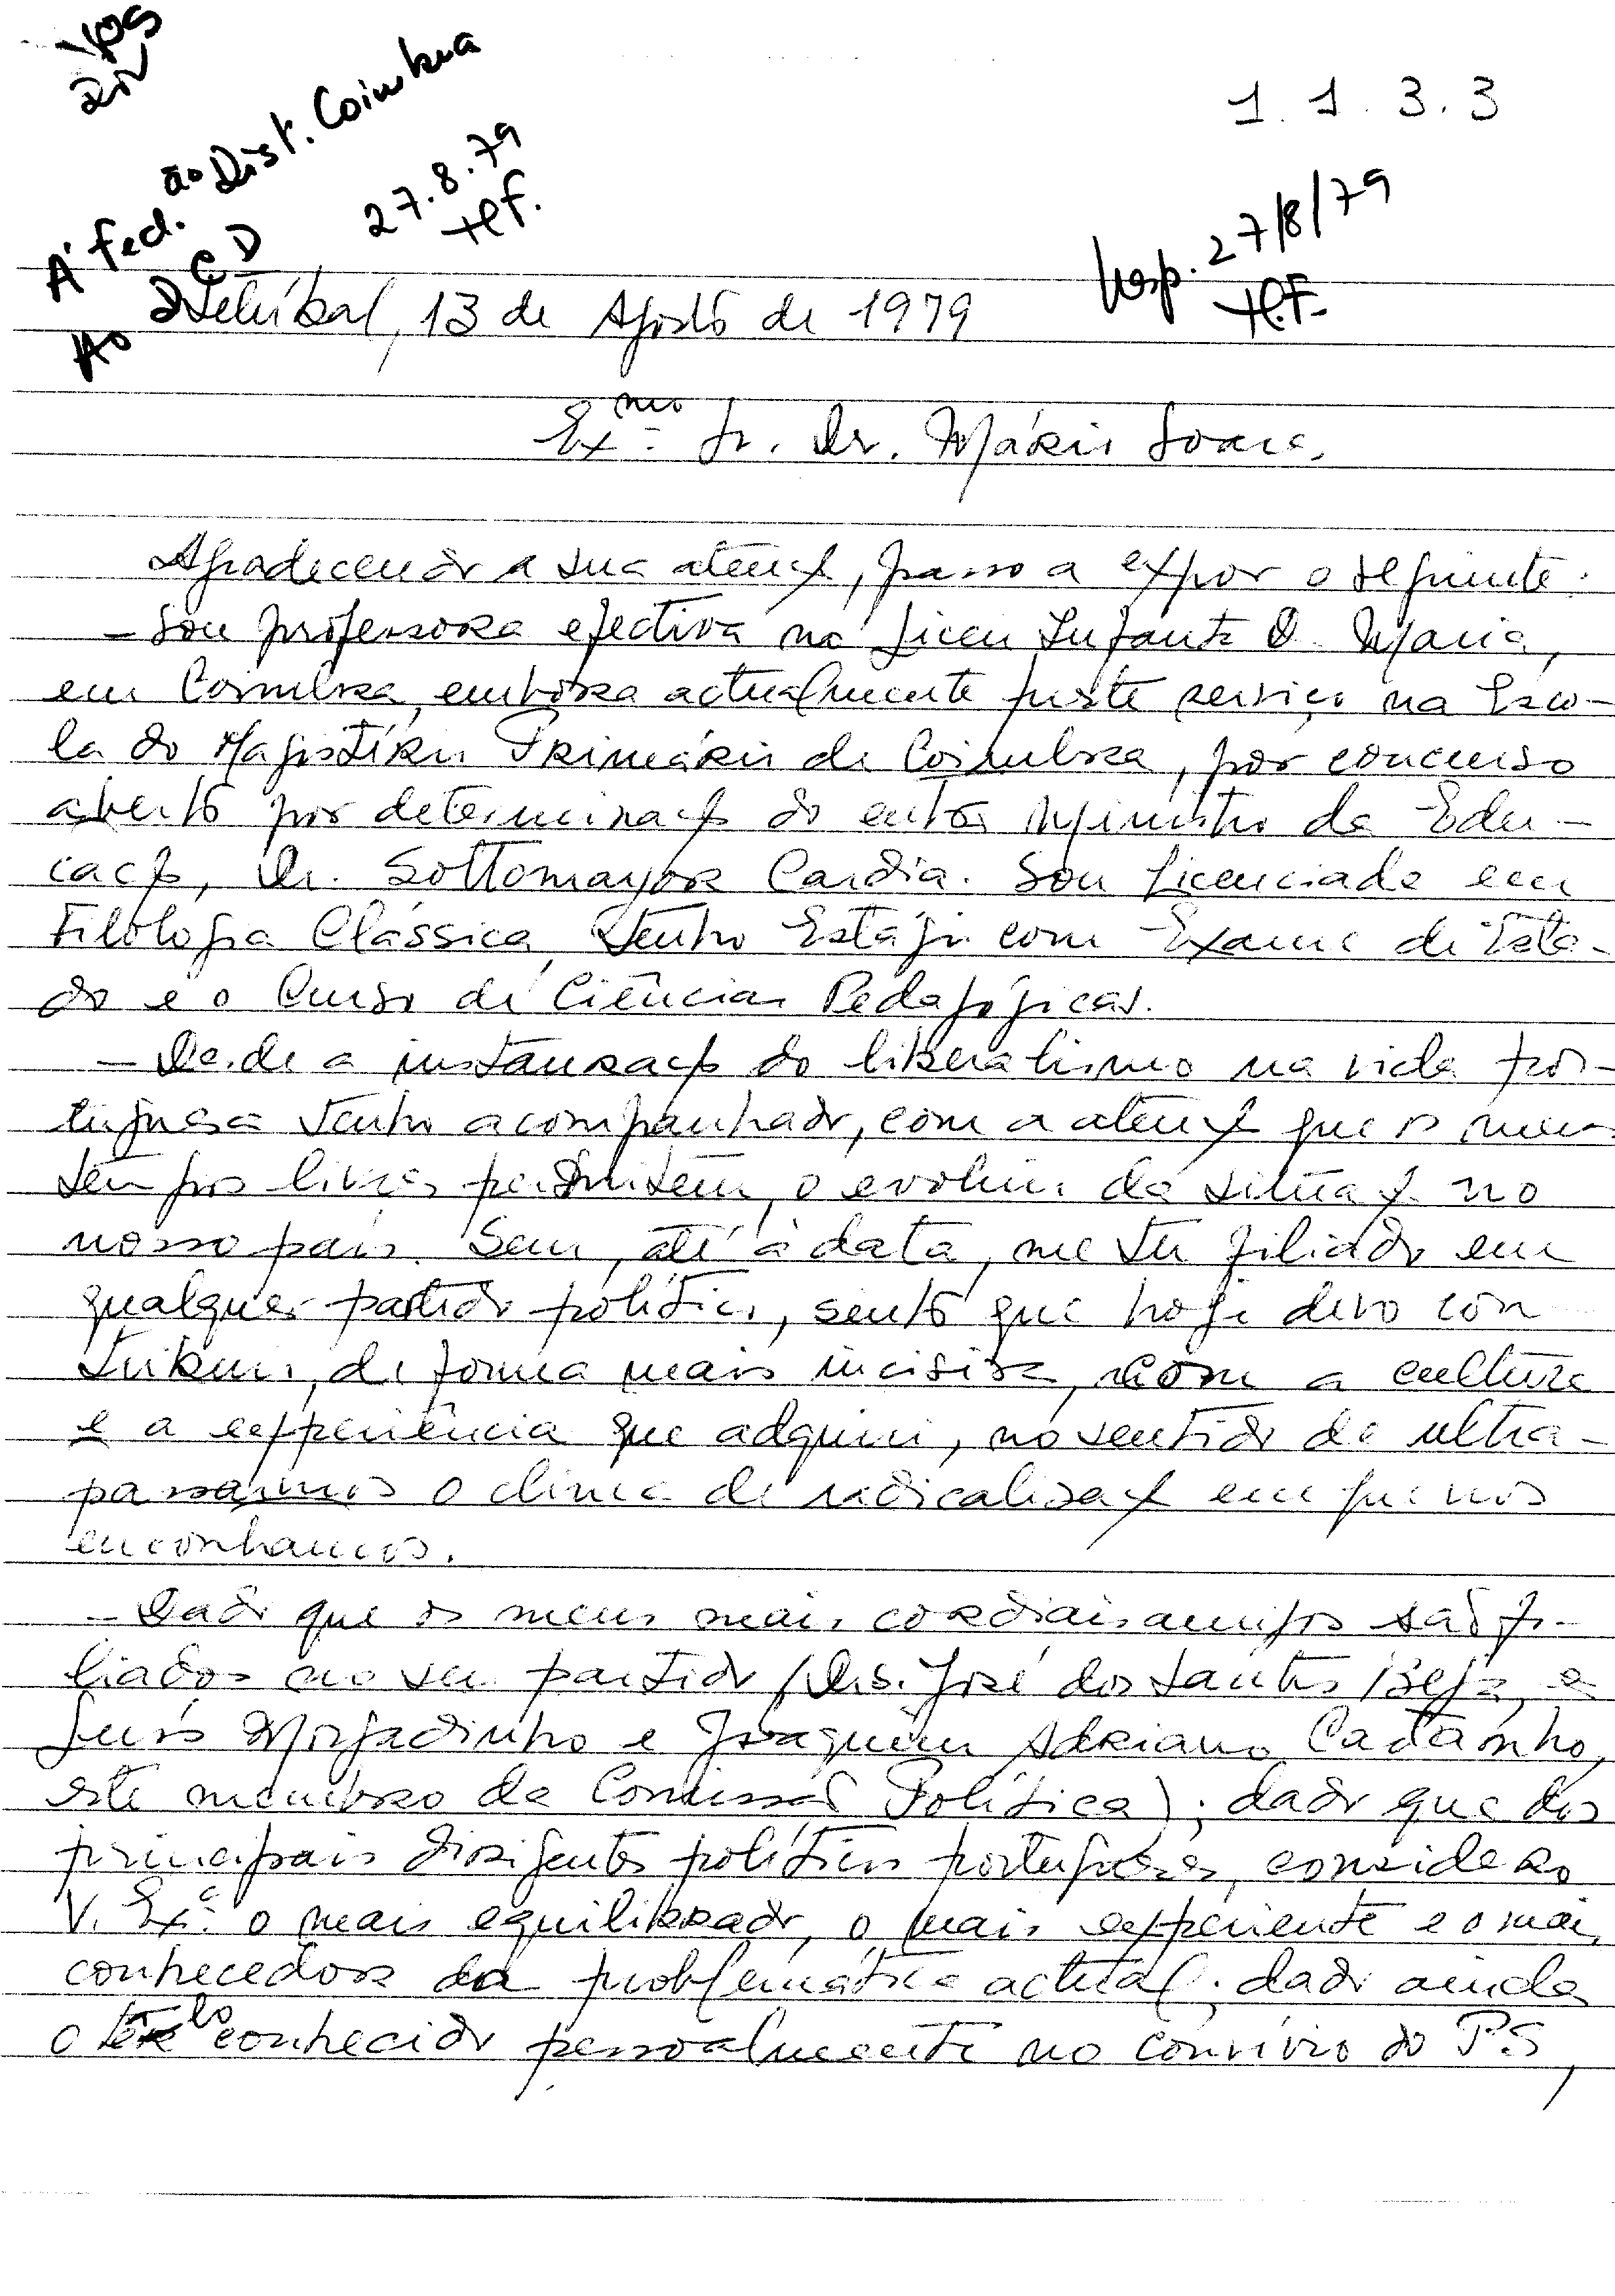 1.1.3.3
À Fed. Dist. Coimbra
27.8.79
Ao CD
Resp. 27/8/79
Setúbal, 13 de Agosto de 1979
Ex.mo Sr. Dr. Mário Soares,
Agradecendo a sua atenção, passo a expor o seguinte:
– Sou professora efectiva no Liceu Infanta D. Maria,
em Coimbra, embora actualmente preste serviço na Esco-
la do Magistério Primário de Coimbra, por concurso
aberto por determinação do então Ministro da Edu-
cação, Dr. Sottomayor Cardia. Sou licenciada em
Filologia Clássica, tenho Estágio com Exame de Esta-
do e o Curso de Ciências Pedagógicas.
– Desde a instauração do liberalismo na vida por-
tuguesa tenho acompanhado, com a atenção que os meus
tempos livres permitem, o evoluir da situação no
nosso país. Sem, até à data, me ter filiado em
qualquer partido político, sinto que hoje devo con
tribuir, de forma mais incisiva, com a cultura
e a experiência que adquiri, no sentido de ultra-
passarmos o clima de radicalização em que nos
encontramos.
– Dado que os meus mais cordiais amigos são fi-
liados no seu partido (Drs. José dos Santos Beja, e
Luís Morgadinho e Joaquim Adriano
este membro da Comissão Política); dado que dos
principais dirigentes políticos portugueses, considero
V. Ex.a o mais equilibrado, o mais experiente e o mais
conhecedor da problemática actual; dado ainda
o tê-lo conhecido pessoalmente no convívio do P.S,